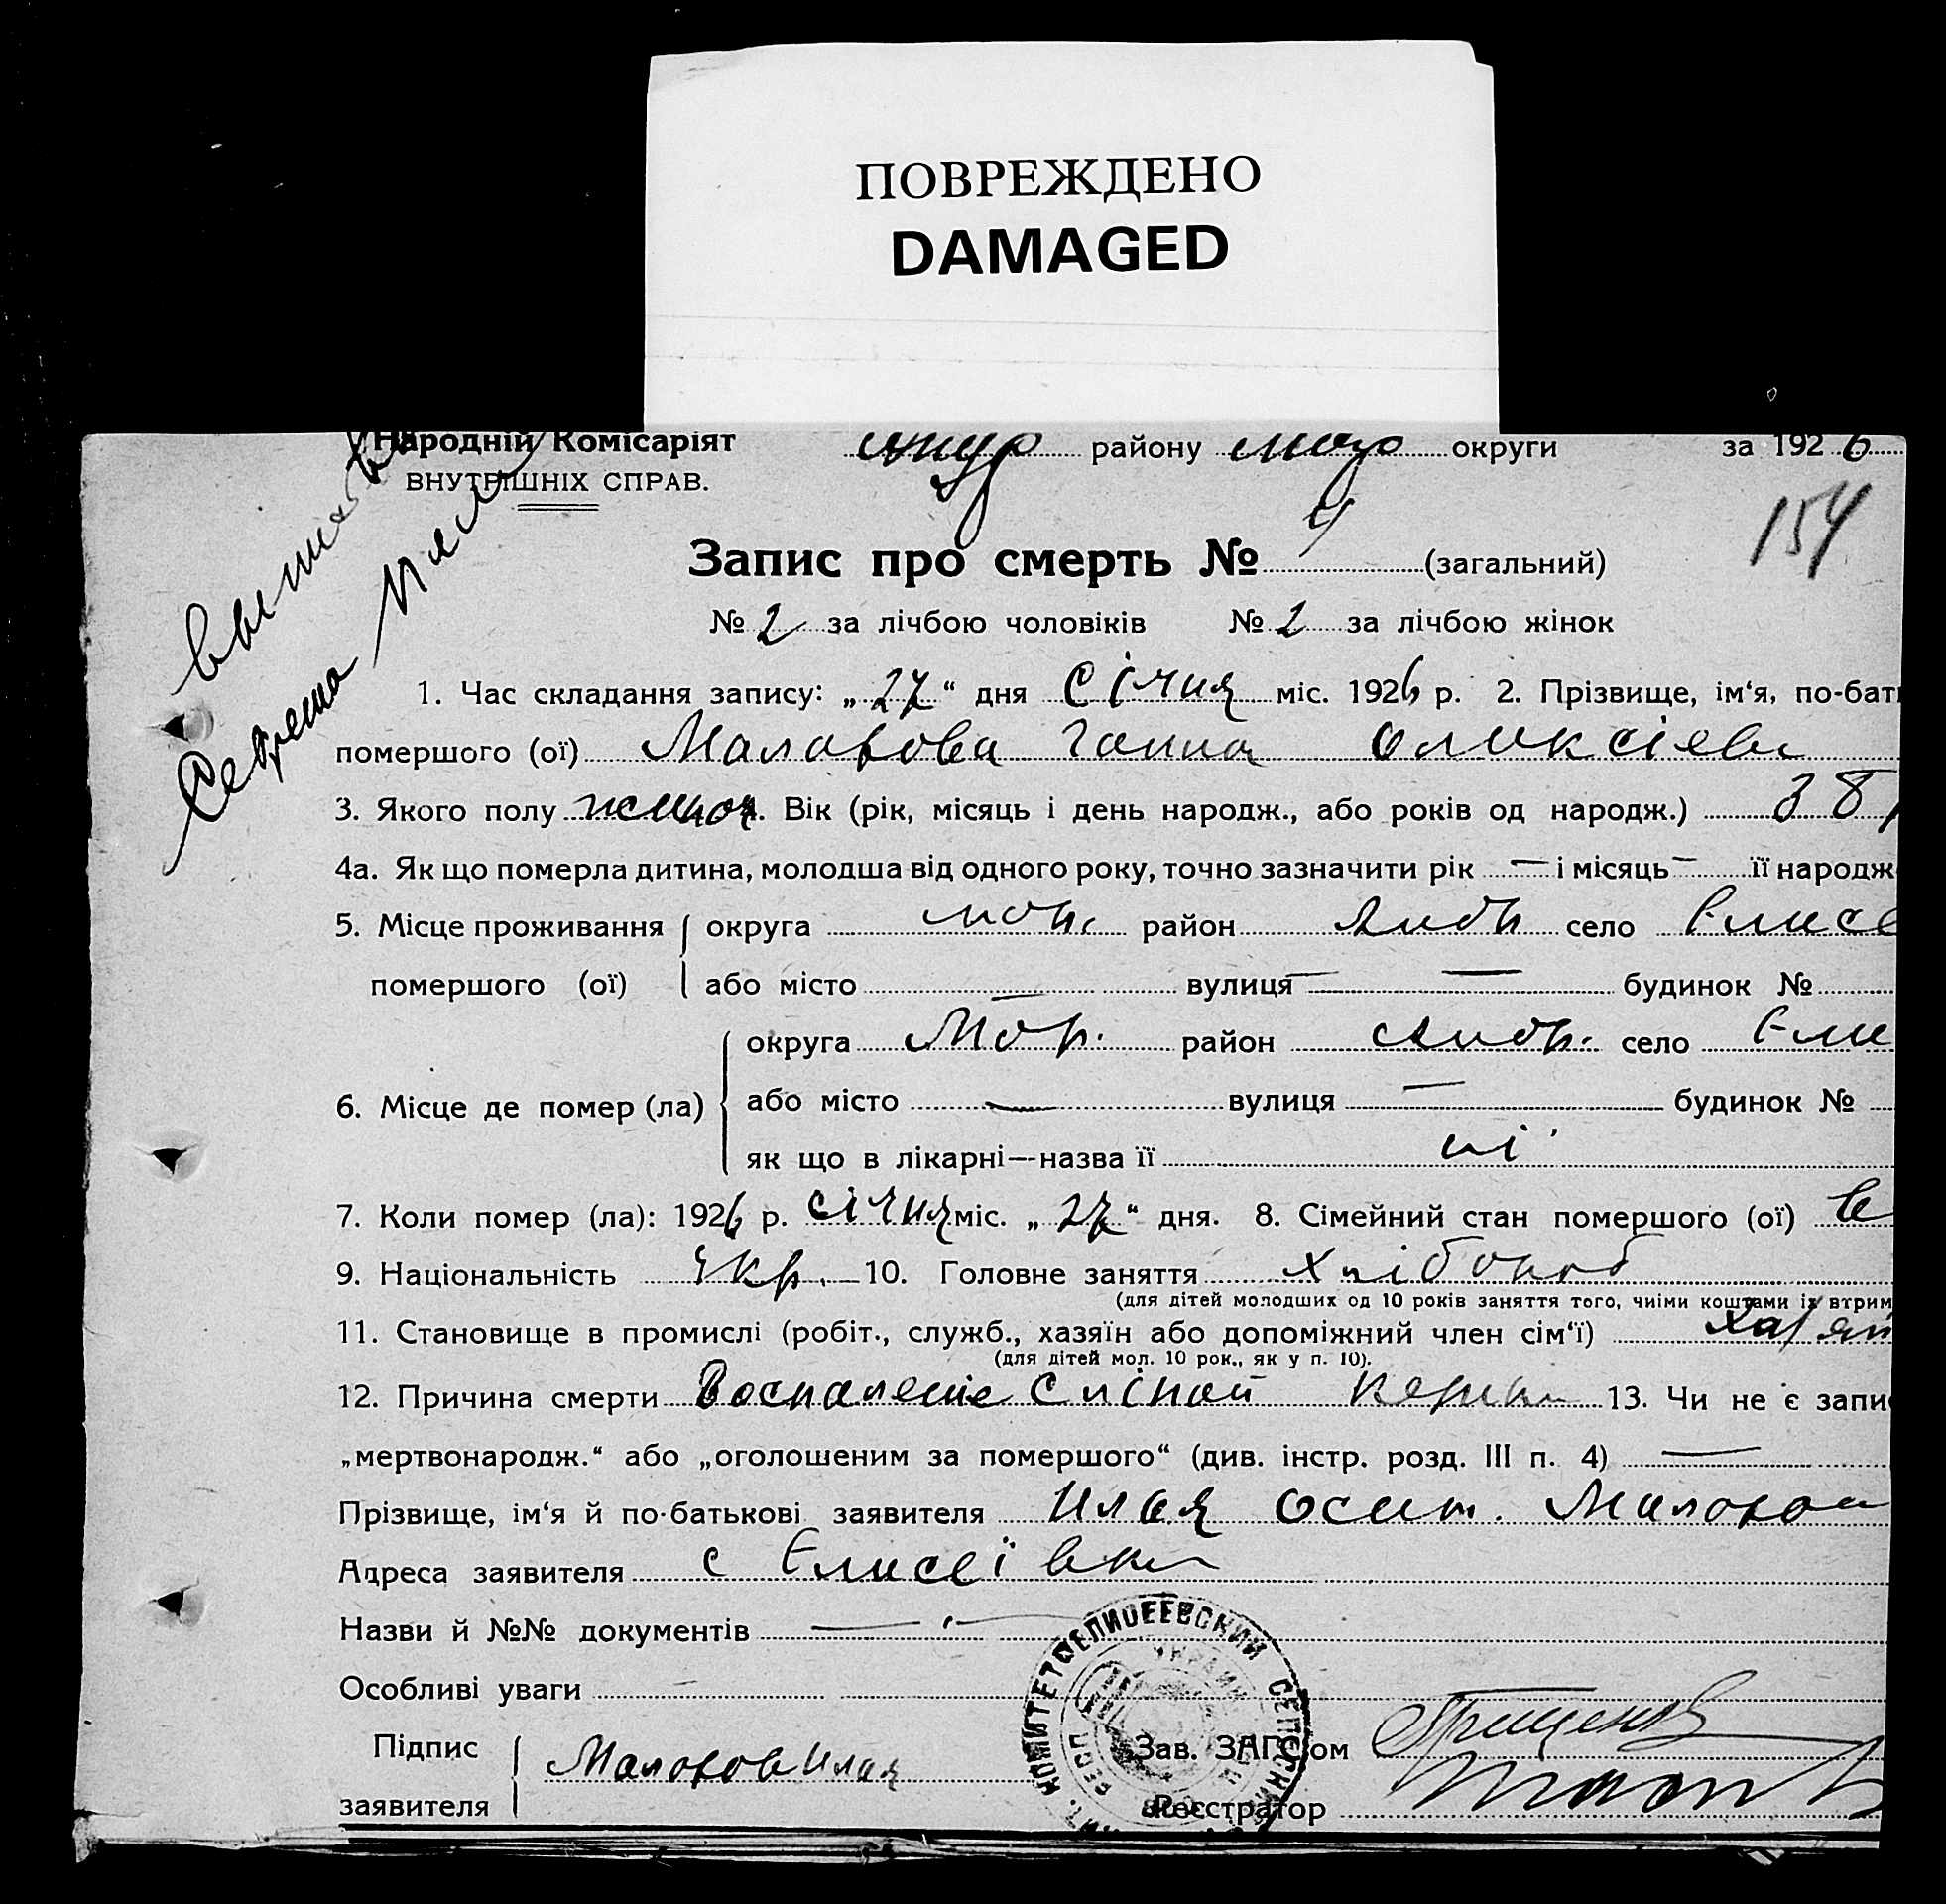 ПОВРЕЖДЕНО
DAMAGED
Народній Комісаріят району округи за 1926
ВНУТРІШНІХ СПРАВ.
154
Запис про смерть № 4 (загальний)
№ 2 за лічбою чоловіків № 2 за лічбою жінок
1. Час складання запису: „27“ дня Січня міс. 1926 р. 2. Прізвище, ім‘я, по-бат
помершого (ої) Ганна
3. Якого полу Вік (рік, місяць і день народж., або років од народж.) 38
4а. Як що померла дитина, молодша від одного року, точно зазначити рік — і місяць — її народж
5. Місце проживання округа район село Єлисе
помершого (ої) або місто вулиця — будинок №
округа район село Єли
6. Місце де помер (ла) або місто — вулиця — будинок №
як що в лікарні—назва її ні
7. Коли помер (ла): 1926 р. Січня міс. „27“ дня. 8. Сімейний стан помершого (ої)
9. Національність Укр. 10. Головне заняття Хлібороб
(для дітей молодших од 10 років заняття того, чиїми коштами їх втрим
11. Становище в промислі (робіт., служб., хазяїн або допоміжний член сім‘ї)
(для дітей мол. 10 рок., як у п. 10).
12. Причина смерти Воспаленіе Слепой 13. Чи не є запи
„мертвонародж.“ або „оголошеним за помершого“ (див. інстр. розд. III п. 4) —
Прізвище, ім‘я й по-батькові заявителя Илья Осип.
Адреса заявителя с Єлисеївки
Назви й №№ документів —
Особливі уваги —
Підпис Зав. ЗАГСом
заявителя Илья Реєстратор
ЕЛИСЕЕВСКИЙ СЕЛЬСКИЙ